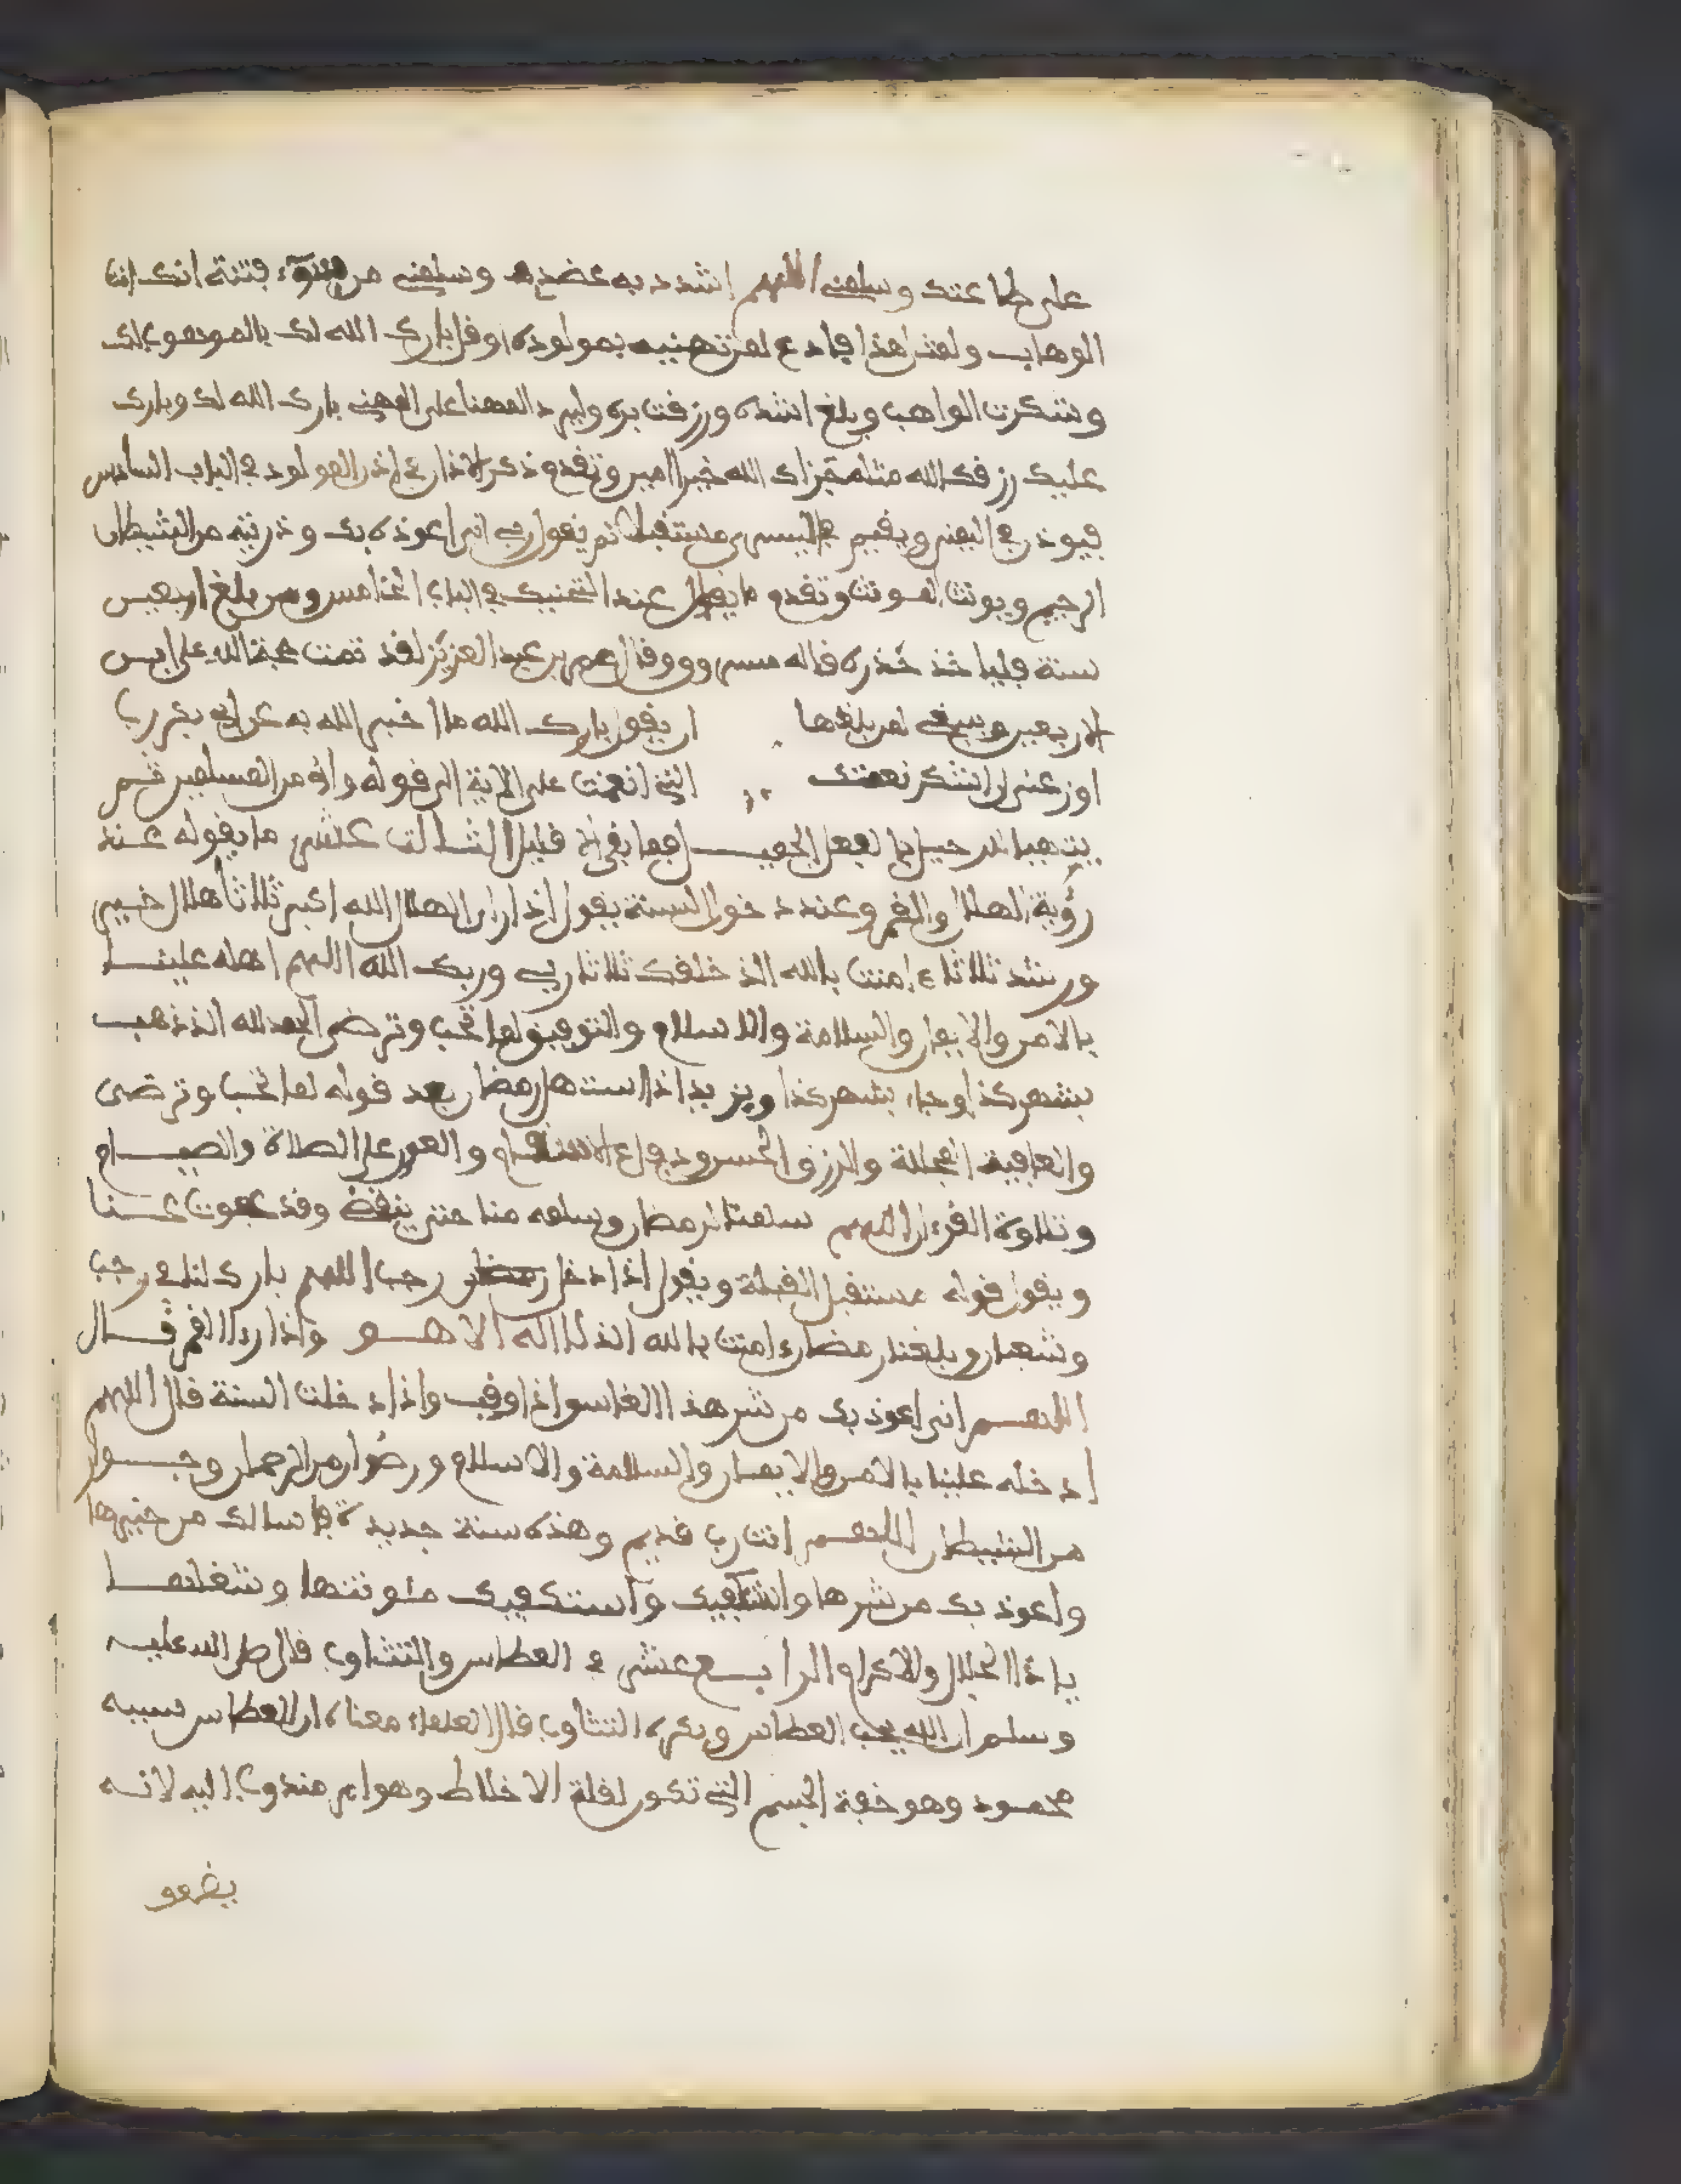 على طاعتك وسلمني اللهم اشدد به عضدي وسلمني من سوء فتنة انك انت
الوهاب ولغن هذا وادع لمن تهنيه بمولوده وقل بارك الله لك بالموهوب لك
وشكرت الواهب وبلغ اشده ورزقت بره وليرد المهنا على المهني بارك الله لك وبارك
عليك رزقك الله مثله جزاك الله خيرا امين وتقدم ذكر الاذان في اذن المولود في الباب السادس
فيوذن في اليمنى ويقيم في اليسرى مستقبلا ثم يقول رب اني اعوذه بك وذريته من الشيطان
الرجيم ويونث لمونث وتقدم ما يفعل عند التحنيك في الباب الخامس ومن بلغ اربعين
سنة فلياخذ حذره قاله مسروق وقال عمر بن عبد العزيز لقد تمت حجة الله على ابن
الاربعين وينبغي لمن بلغها ان يقول بارك الله ما اخبر الله به عن ابي بكر رب
اوزعني ان اشكر نعمتك التي انعمت علي الاية الى قوله واني من المسلمين ثم
يتهيا للرحيل بالفعل الجميل فما بقي الا قليل الثالث عشر ما يقوله عند
رؤية الهلال والقمر وعند دخول السنة يقول اذا راى الهلال الله اكبر ثلاثا هلال خير
ورشد ثلاثا ءامنت بالله الذ خلقك ثلاثا ربي وربك الله اللهم اهله علينا
بالامن والايمان والسلامة والاسلام والتوفيق لما تحب وترضى الحمد لله الذ ذهب
بشهر كذا وجاء بشهر كذا ويزيد اذا استهل رمضان بعد قوله لما تحب وترضى
والعافية المجللة والرزق الحسن ودفاع الاسقام والعون على الصلاة والصيام
وتلاوة القرءان اللهم سلمنا لرمضان وسلمه منا حتى ينقضي وقد عفوت عنا
ويقول قوله مستقبل القبلة ويقول اذا دخل رمضان رجب اللهم بارك لنا في رجب
وشعبان وبلغنا رمضان ءامنت بالله الذ لا اله الا هو واذا رءا القمر قال
اللهم اني اعوذ بك من شر هذا الغاسق اذا وقب واذا دخلت السنة قال اللهم
ادخله علينا بالامن والايمان والسلامة والاسلام ورضوان من الرحمان وجوار
من الشيطان اللهم انت رب قديم وهذه سنة جديدة فاسالك من خيرها
واعوذ بك من شرها واستكفيك واستكفيك مئونتها وشغلها
يا ذا الجلال والاكرام الرابع عشر في العطاس والتثاوب قال صلى الله عليه
وسلم ان الله يحب العطاس ويكره التثاوب قال العلماء معناه ان العطاس سببه
محمود وهو خفة الجسم التي تكون لقلة الاخلاط وهو امر مندوب اليه لانه